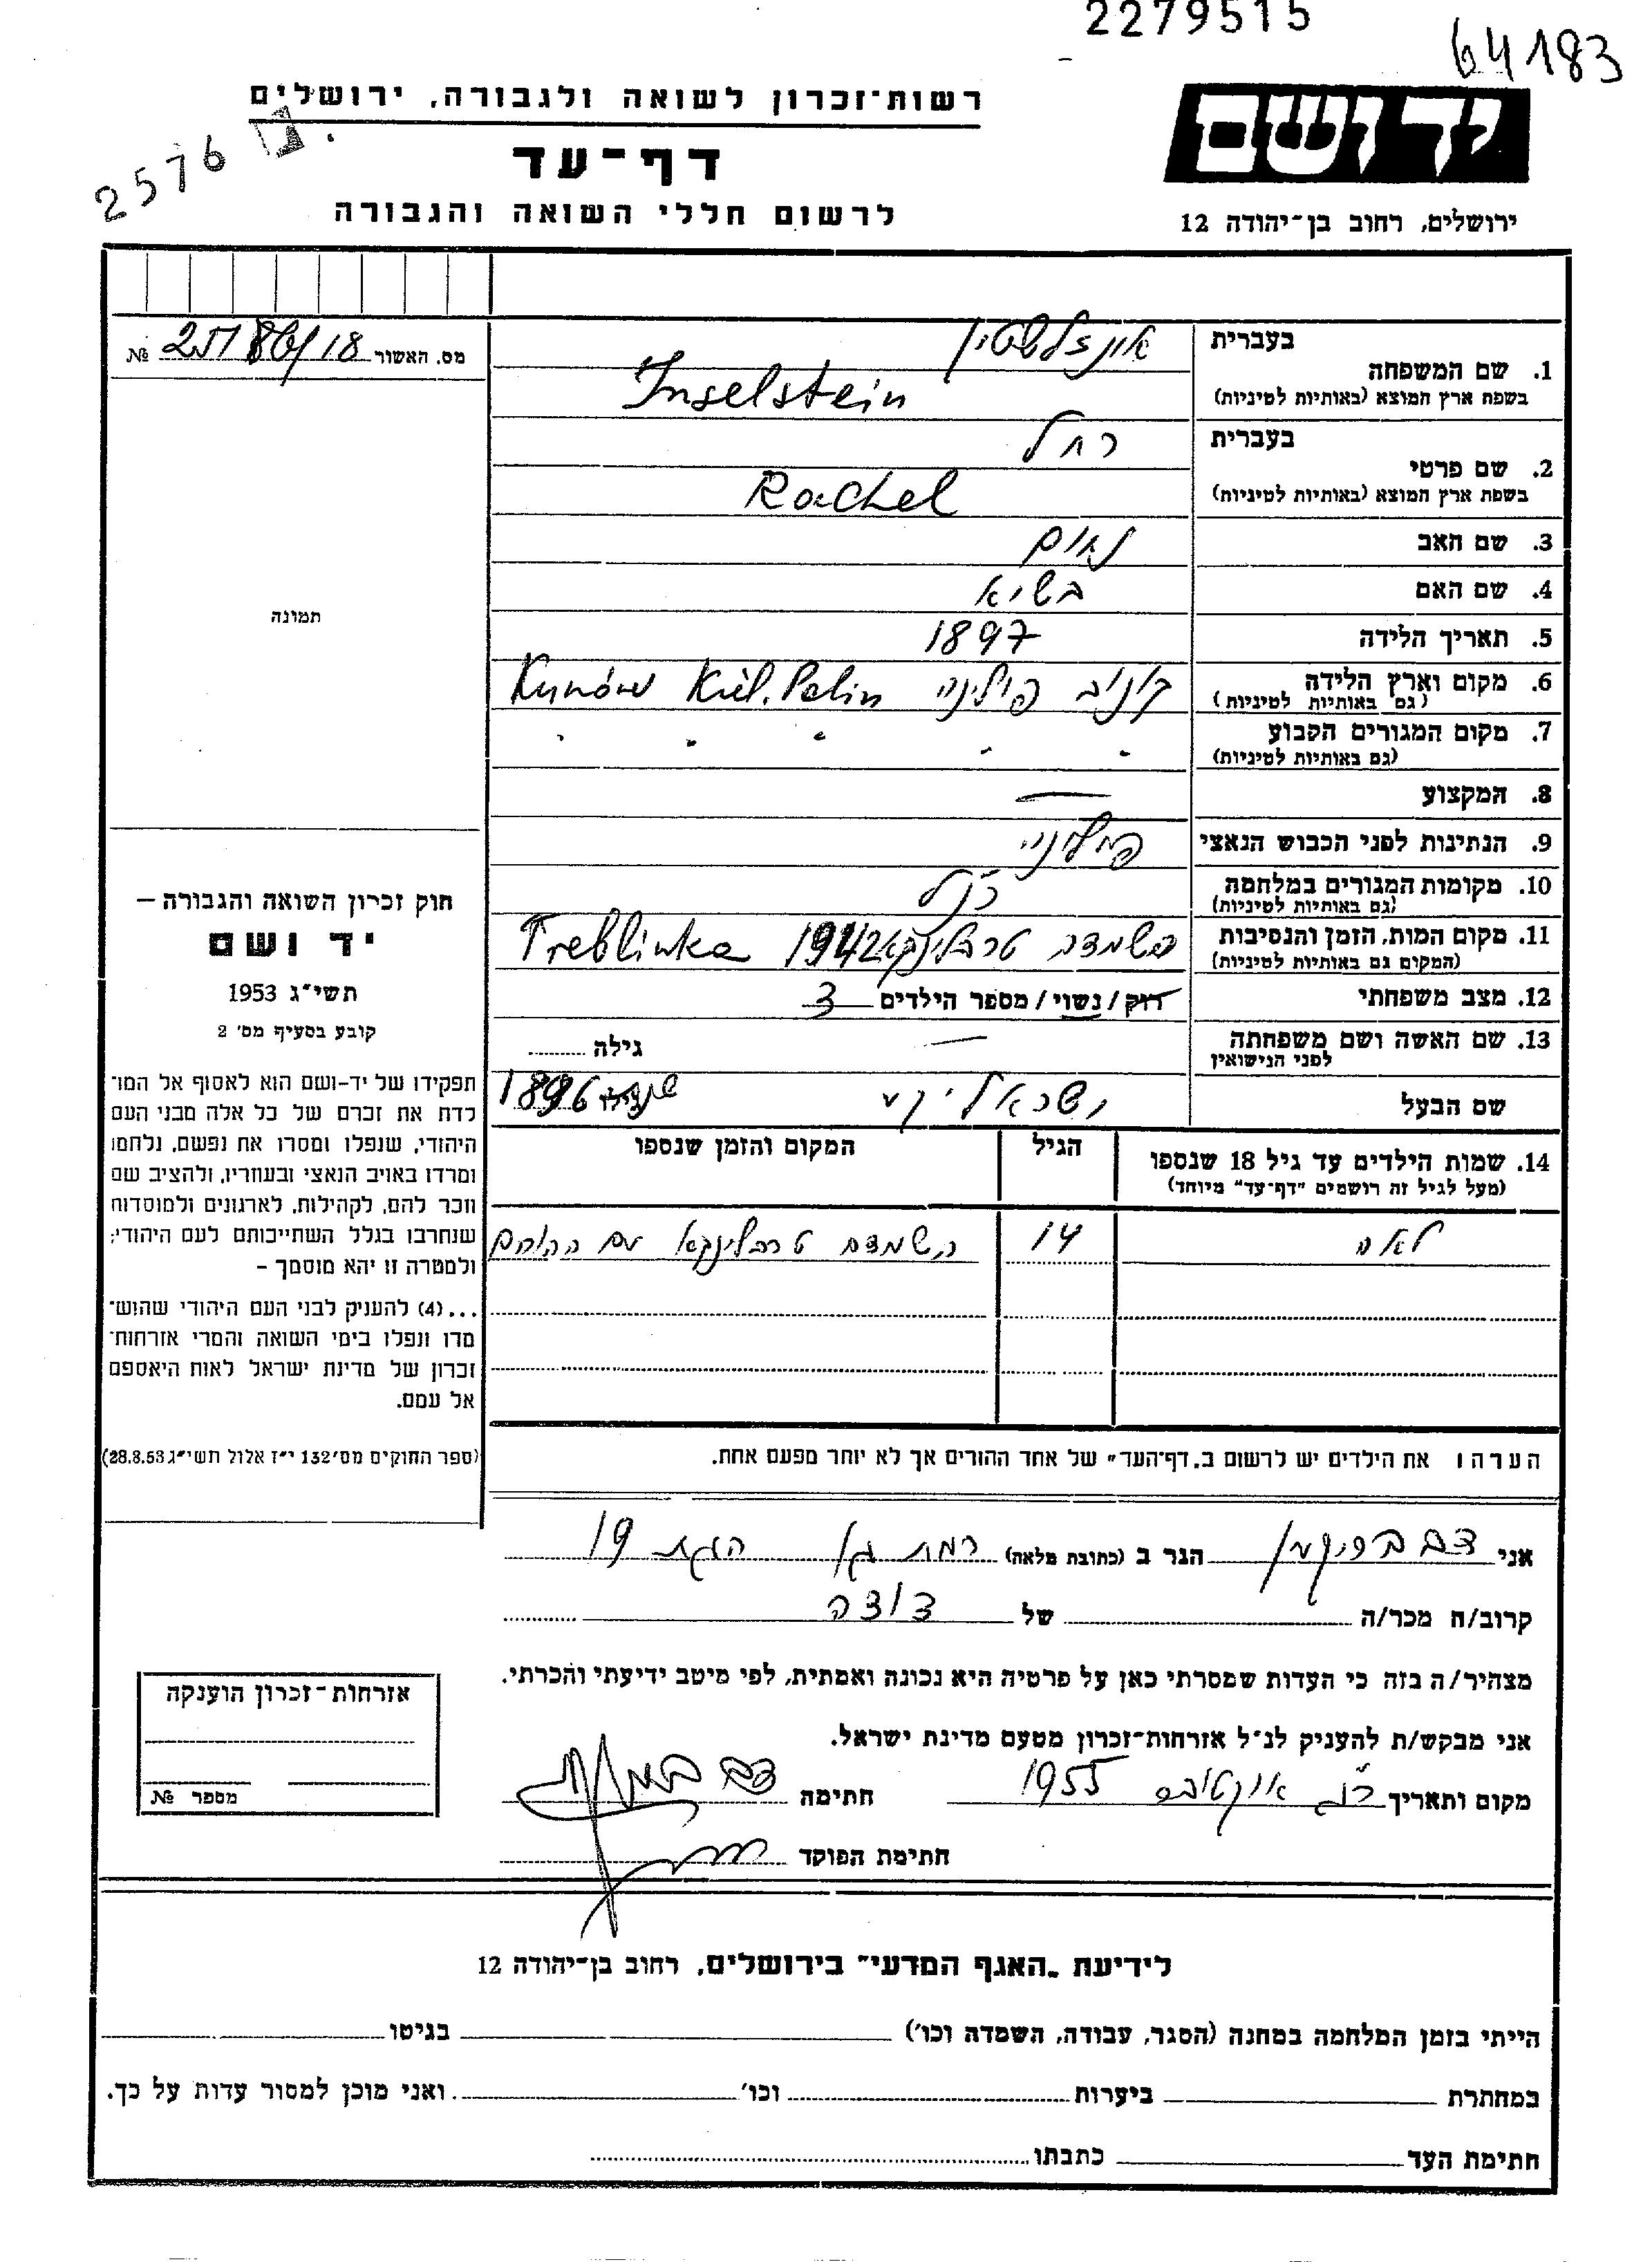 2279515
64183
רשות־זכרון לשואה ולגבורה, ירושלים
2576
דף־עד
לרשום חללי השואה והגבורה
יד ושם
ירושלים, רחוב בן־יהודה 12
מס. האשור №
בעברית
1. שם המשפחה
בשפת ארץ המוצא (באותיות לטיניות)
אינזלשטיין
Inselstein
בעברית
2. שם פרטי
בשפת ארץ המוצא (באותיות לטיניות)
רחל
Rachel
3. שם האב
4. שם האם
בשיא
5. תאריך הלידה
1897
6. מקום וארץ הלידה
(גם באותיות לטיניות)
קונוב פולניה Kunów Kiel. Polin
7. מקום המגורים הקבוע
(גם באותיות לטיניות)
" " " " "
8. המקצוע —
9. הנתינות לפני הכבוש הנאצי
פולניה
10. מקומות המגורים במלחמה
(גם באותיות לטיניות)
כנ"ל
11. מקום המות, הזמן והנסיבות
(המקום גם באותיות לטיניות)
השמדה טרבלינקא 1942 Treblinka
12. מצב משפחתי
רוק/נשוי/מספר הילדים 3
13. שם האשה ושם משפחתה
לפני הנישואין
— גילה
שם הבעל
1896
14. שמות הילדים עד גיל 18 שנספו
(מעל לגיל זה רושמים "דף־עד" מיוחד)
הגיל
המקום והזמן שנספו
לאה 14 השמדה טרבלינקא עם ההורים
הערה: את הילדים יש לרשום ב„דף־העד" של אחד ההורים אך לא יותר מפעם אחת.
תמונה
חוק זכרון השואה והגבורה —
יד ושם
תשי"ג 1953
קובע בסעיף מס' 2
תפקידו של יד-ושם הוא לאסוף אל המו־
לדת את זכרם של כל אלה מבני העם
היהודי, שנפלו ומסרו את נפשם, נלחמו
ומרדו באויב הנאצי ובעוזריו, ולהציב שם
וזכר להם, לקהילות, לארגונים ולמוסדות
שנחרבו בגלל השתייכותם לעם היהודי;
ולמטרה זו יהא מוסמך –
...(4) להעניק לבני העם היהודי שהוש־
מדו ונפלו בימי השואה והמרי אזרחות־
זכרון של מדינת ישראל לאות היאספם
אל עמם.
(ספר החוקים מס' 132 י"ז אלול תשי"ג 28.8.53)
אני הגר ב (כתובת מלאה) רמת גן 19
קרוב/ה מכר/ה של דודה
מצהיר/ה בזה כי העדות שמסרתי כאן על פרטיה היא נכונה ואמתית, לפי מיטב ידיעתי והכרתי.
אני מבקש/ת להעניק לנ"ל אזרחות־זכרון מטעם מדינת ישראל.
מקום ותאריך ר"ג אוקטובר 1955 חתימה
חתימת הפוקד
אזרחות־זכרון הוענקה
מספר №
לידיעת „האגף המדעי" בירושלים, רחוב בן־יהודה 12
הייתי בזמן המלחמה במחנה (הסגר, עבודה, השמדה וכו') בגיטו
במחתרת ביערות וכו' ואני מוכן למסור עדות על כך.
חתימת העד כתבתו